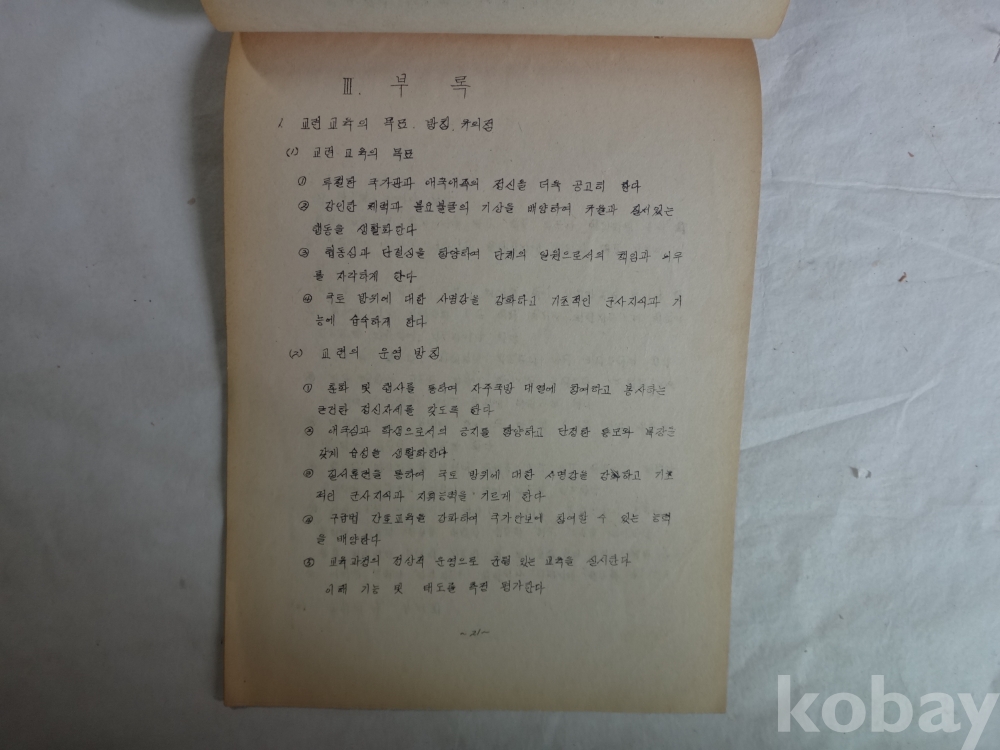 Ⅲ. 부 록
1. 교련 교육의 목표. 방침.
(1) 교련 교육의 목표
① 투철한 국가관과 애국애족의 정신을 더욱 공고히 한다
② 강인한 체력과 불요불굴의 기상을 배양하여 규율과 질서있는
행동을 생활화한다
③ 협동심과 단결심을 함양하여 단체의 일원으로서의 책임과 의무
를 자각하게 한다
④ 국토 방위에 대한 사명감을 강화하고 기초적인 군사지식과 기
능에 습숙하게 한다
(2) 교련의 운영 방침
① 훈화 및 행사를 통하여 자주국방 대열에 참여하고 봉사하는
굳건한 정신자세를 갖도록 한다
② 애국심과 학생으로서의 긍지를 함양하고 단정한 용모와 복장을
갖게 습성을 생활화한다
③ 질서훈련을 통하여 국토 방위에 대한 사명감을 강화하고 기초
적인 군사지식과 지휘능력을 기르게 한다
④ 구급법 간호교육을 강화하여 국가안보에 참여할 수 있는 능력
을 배양한다
⑤ 교육과정의 정상적 운영으로 균형 있는 교육을 실시한다
이해 기능 및 태도를 측정 평가한다
~21~
kobay